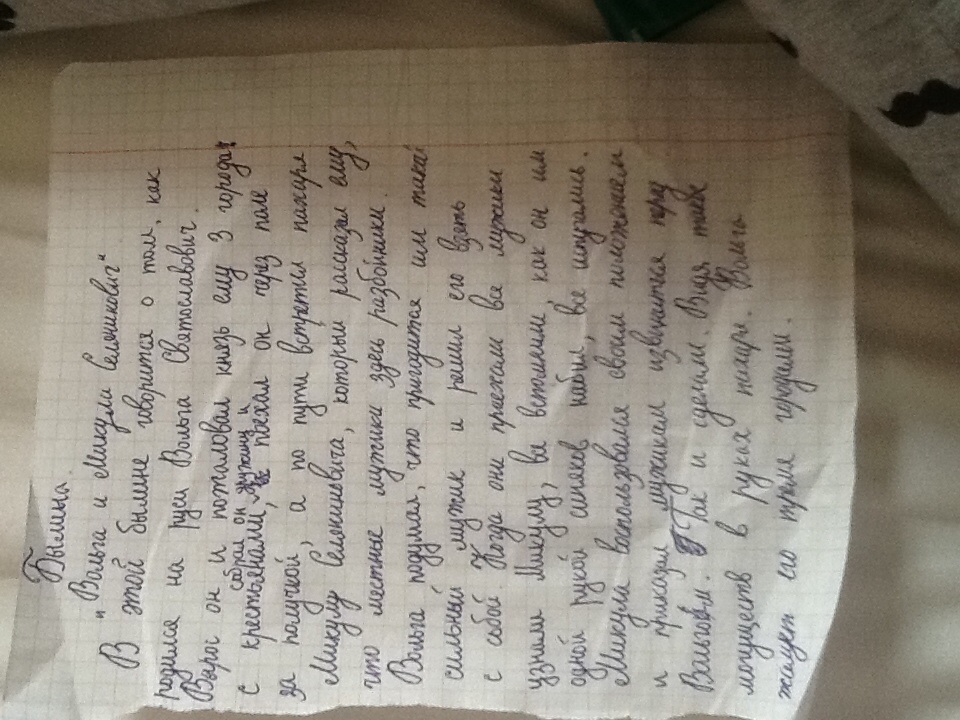 Былина.
"Вольга и Микула Селянинович"
В этой былине говорится о том, как
родился на Руси Вольга Святославович.
Вырос он и пожаловал князь ему 3 города
с крестьянами, собрал он дружину и поехал он через поле
за получкой, а по пути встретил пахаря
Микулу Селяниновича, который рассказал ему,
что местные мужики здесь разбойники.
Вольга подумал, что пригодится им такой
сильный мужик и решил его взять
с собой. Когда они приехали все мужики
узнали Микулу, вы вспомнили, как он им
одной рукой синяков набил, все испугались.
Микула воспользовался своим положением
и приказал мужикам извиниться перед
Вольгом. Так и сделали. Видя такое
могуществ в руках пахаря. Вольга
жалует его тремя городами.